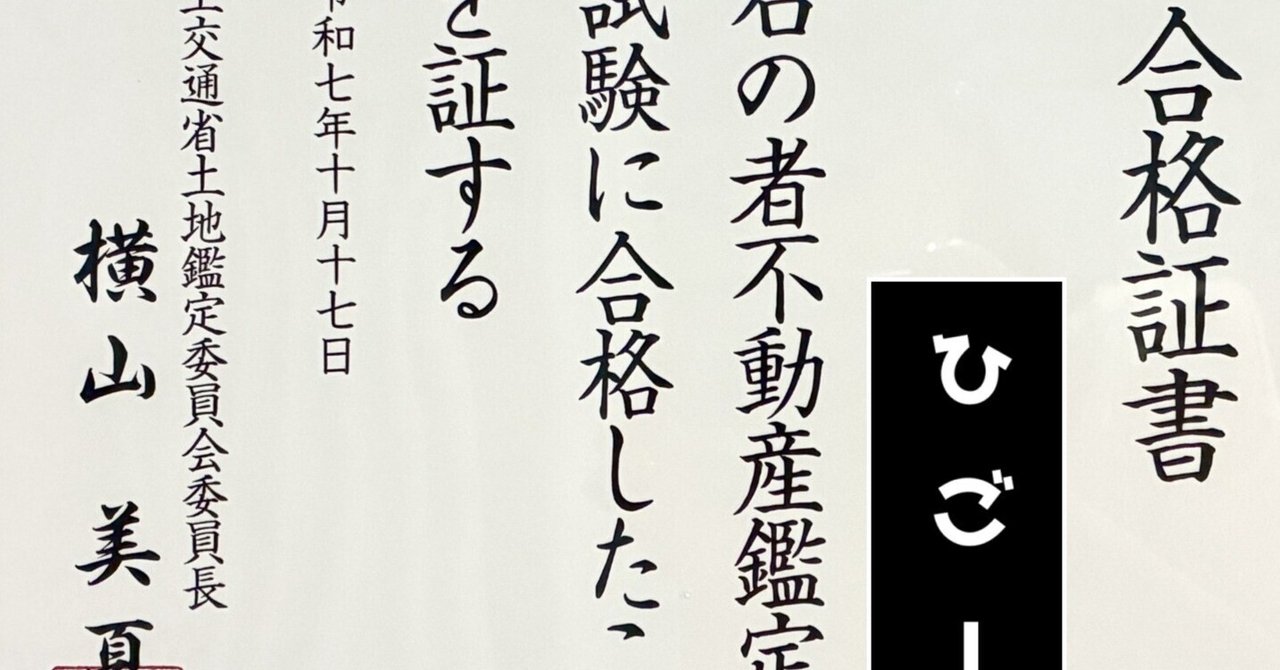 合格証書
ひごー
名の者不動産鑑定
試験に合格したこ
と証する
令和七年十月十七日
土交通省土地鑑定委員会委員長
横山美夏